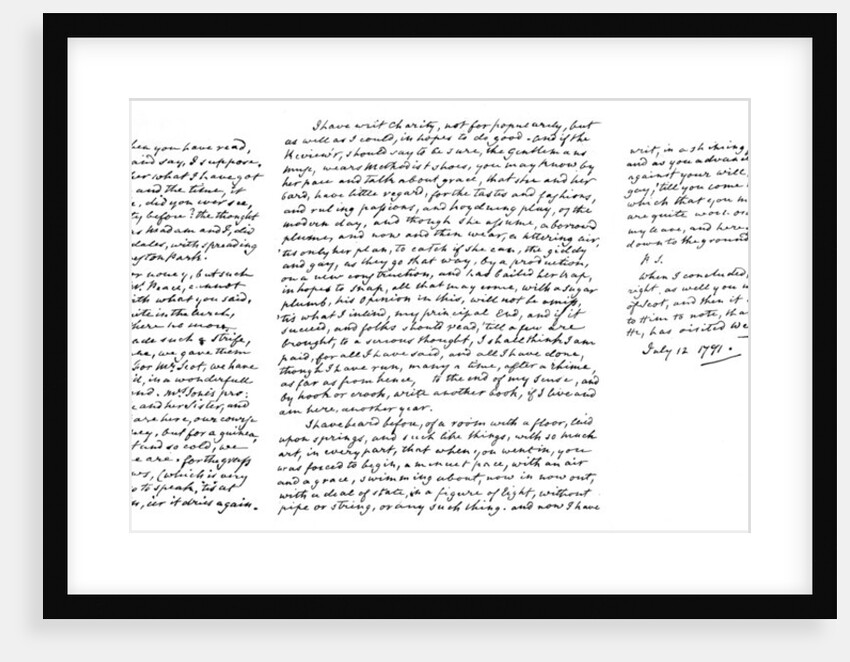 hen you have read,
and say, I suppose.
her what I have got
and the time, it
e, did you ever see,
ty before? the thought
es Madam and I, did
dales, with spreading
eston Park.
or money, but such
Mr. Peace, cannot
ith what you said,
ite in the lurch,
here no more
ade such & strife,
he, we gave them
For Mr. Scot, we have
d, in a wonderfull
nd. Mr. Jones pro:
e and her Sister, and
are here, our course
ney, but for a guinea,
t and so cold, we
e are. for the grass
ws, (which is very
o to speak, 'tis at
n, 'ere it dries again.
I have writ Charity, not for popularity, but
as well as I could, in hopes to do good. and if the
Review'r, should say to be sure, the Gentlemans
muse, wears Methodist shoes, you may know by
her pace and talk about grace, that she and her
bard, have little regard, for the tastes and fashions,
and ruling passions, and hoydening play, of the
modern day, and though she assume, a borrow'd
plume, and now and then wear, a tittering air,
'tis only her plan, to catch if she can, the giddy
and gay, as they go that way, by a production,
on a new construction, and has baited her trap,
in hopes to snap, all that may come, with a sugar
plumb, his opinion in this, will not be amiss,
'tis what I intend, my principal End, and if it
succeed, and folks should read, 'till a few are
brought, to a serious thought, I shall think I am
paid, for all I have said, and all I have done,
though I have run, many a time, after a rhime,
as far as from hence, to the end of my Sense, and
by hook or crook, write another book, if I live and
am here, another year.
I have heard before, of a room with a floor, laid
upon springs, and such like things, with so much
art, in every part, that when you went in, you
was forced to begin, a minuet pace, with an air
and a grace, swimming about, now in now out,
with a deal of state, in a figure of Eight, without
pipe or string, or any such thing. and now I have
writ, in a rhiming
and as you advance
against your will,
gay, 'till you come
which that you m
are quite worn ou
my leave, and here
down to the ground
P. S.
When I concluded,
right. as well you m
of Scot, and then it
to Him to note, tha
He, has visited We
July 12 1781.